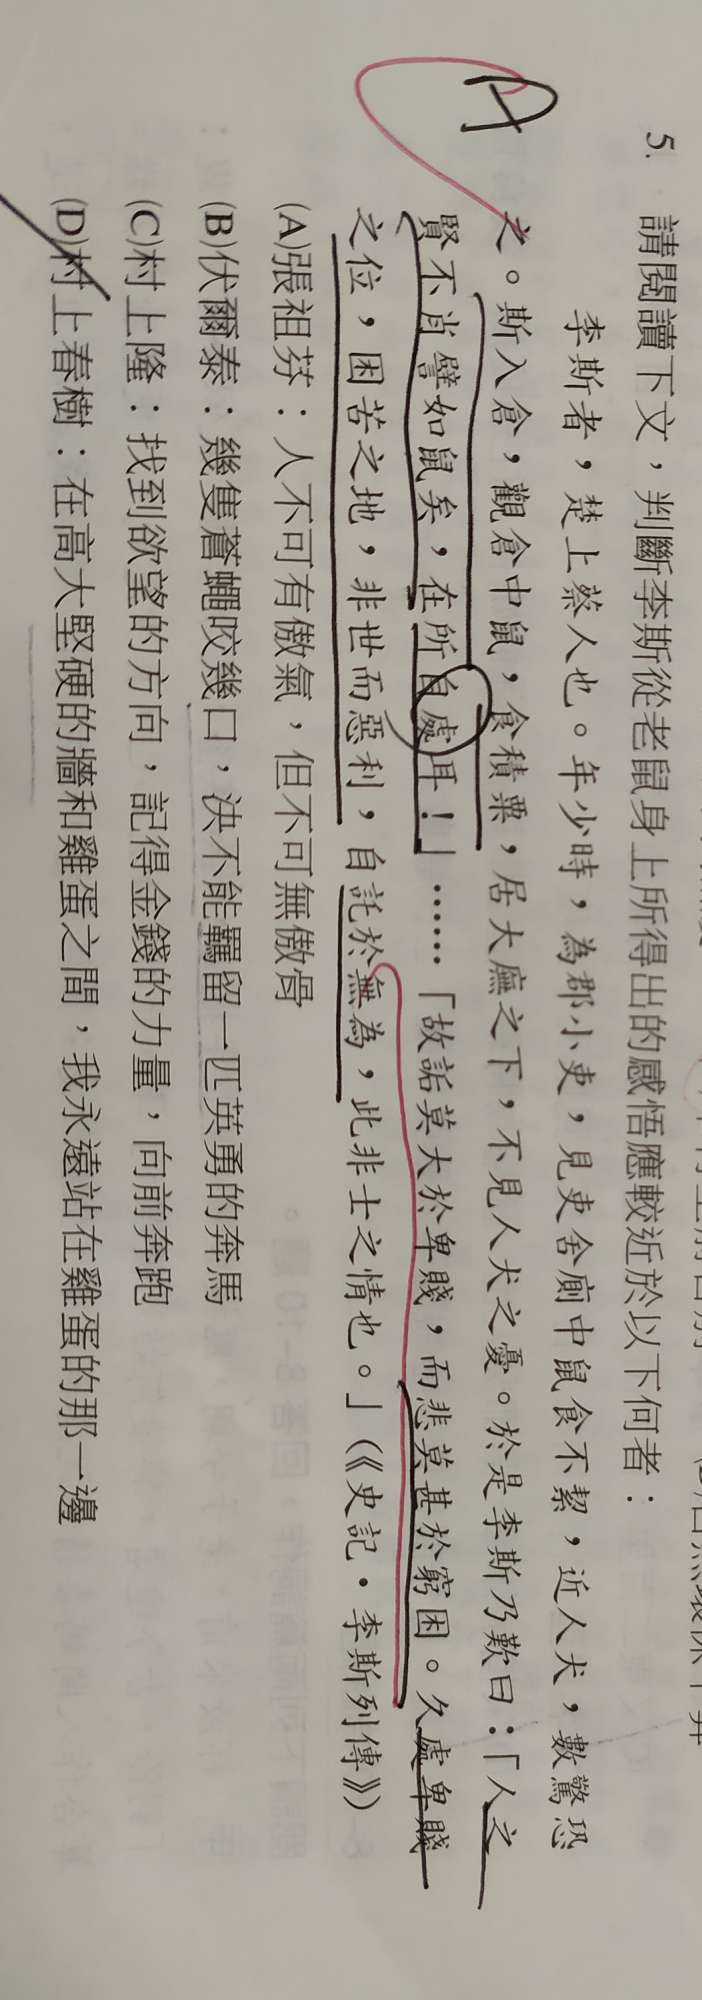 A
5. 請閱讀下文，判斷李斯從老鼠身上所得出的感悟應較近於以下何者：
李斯者，楚上蔡人也。年少時，為郡小吏，見吏舍廁中鼠食不絜，近人犬，數驚恐
之。斯入倉，觀倉中鼠，食積粟，居大廡之下，不見人犬之憂。於是李斯乃歎曰：「人之
賢不肖譬如鼠矣，在所自處耳！」……「故詬莫大於卑賤，而悲莫甚於窮困。久處卑賤
之位，困苦之地，非世而惡利，自託於無為，此非士之情也。」(《史記・李斯列傳》)
(A)張祖芬：人不可有傲氣，但不可無傲骨
(B)伏爾泰：幾隻蒼蠅咬幾口，決不能羈留一匹英勇的奔馬
(C)村上隆：找到欲望的方向，記得金錢的力量，向前奔跑
(D)村上春樹：在高大堅硬的牆和雞蛋之間，我永遠站在雞蛋的那一邊